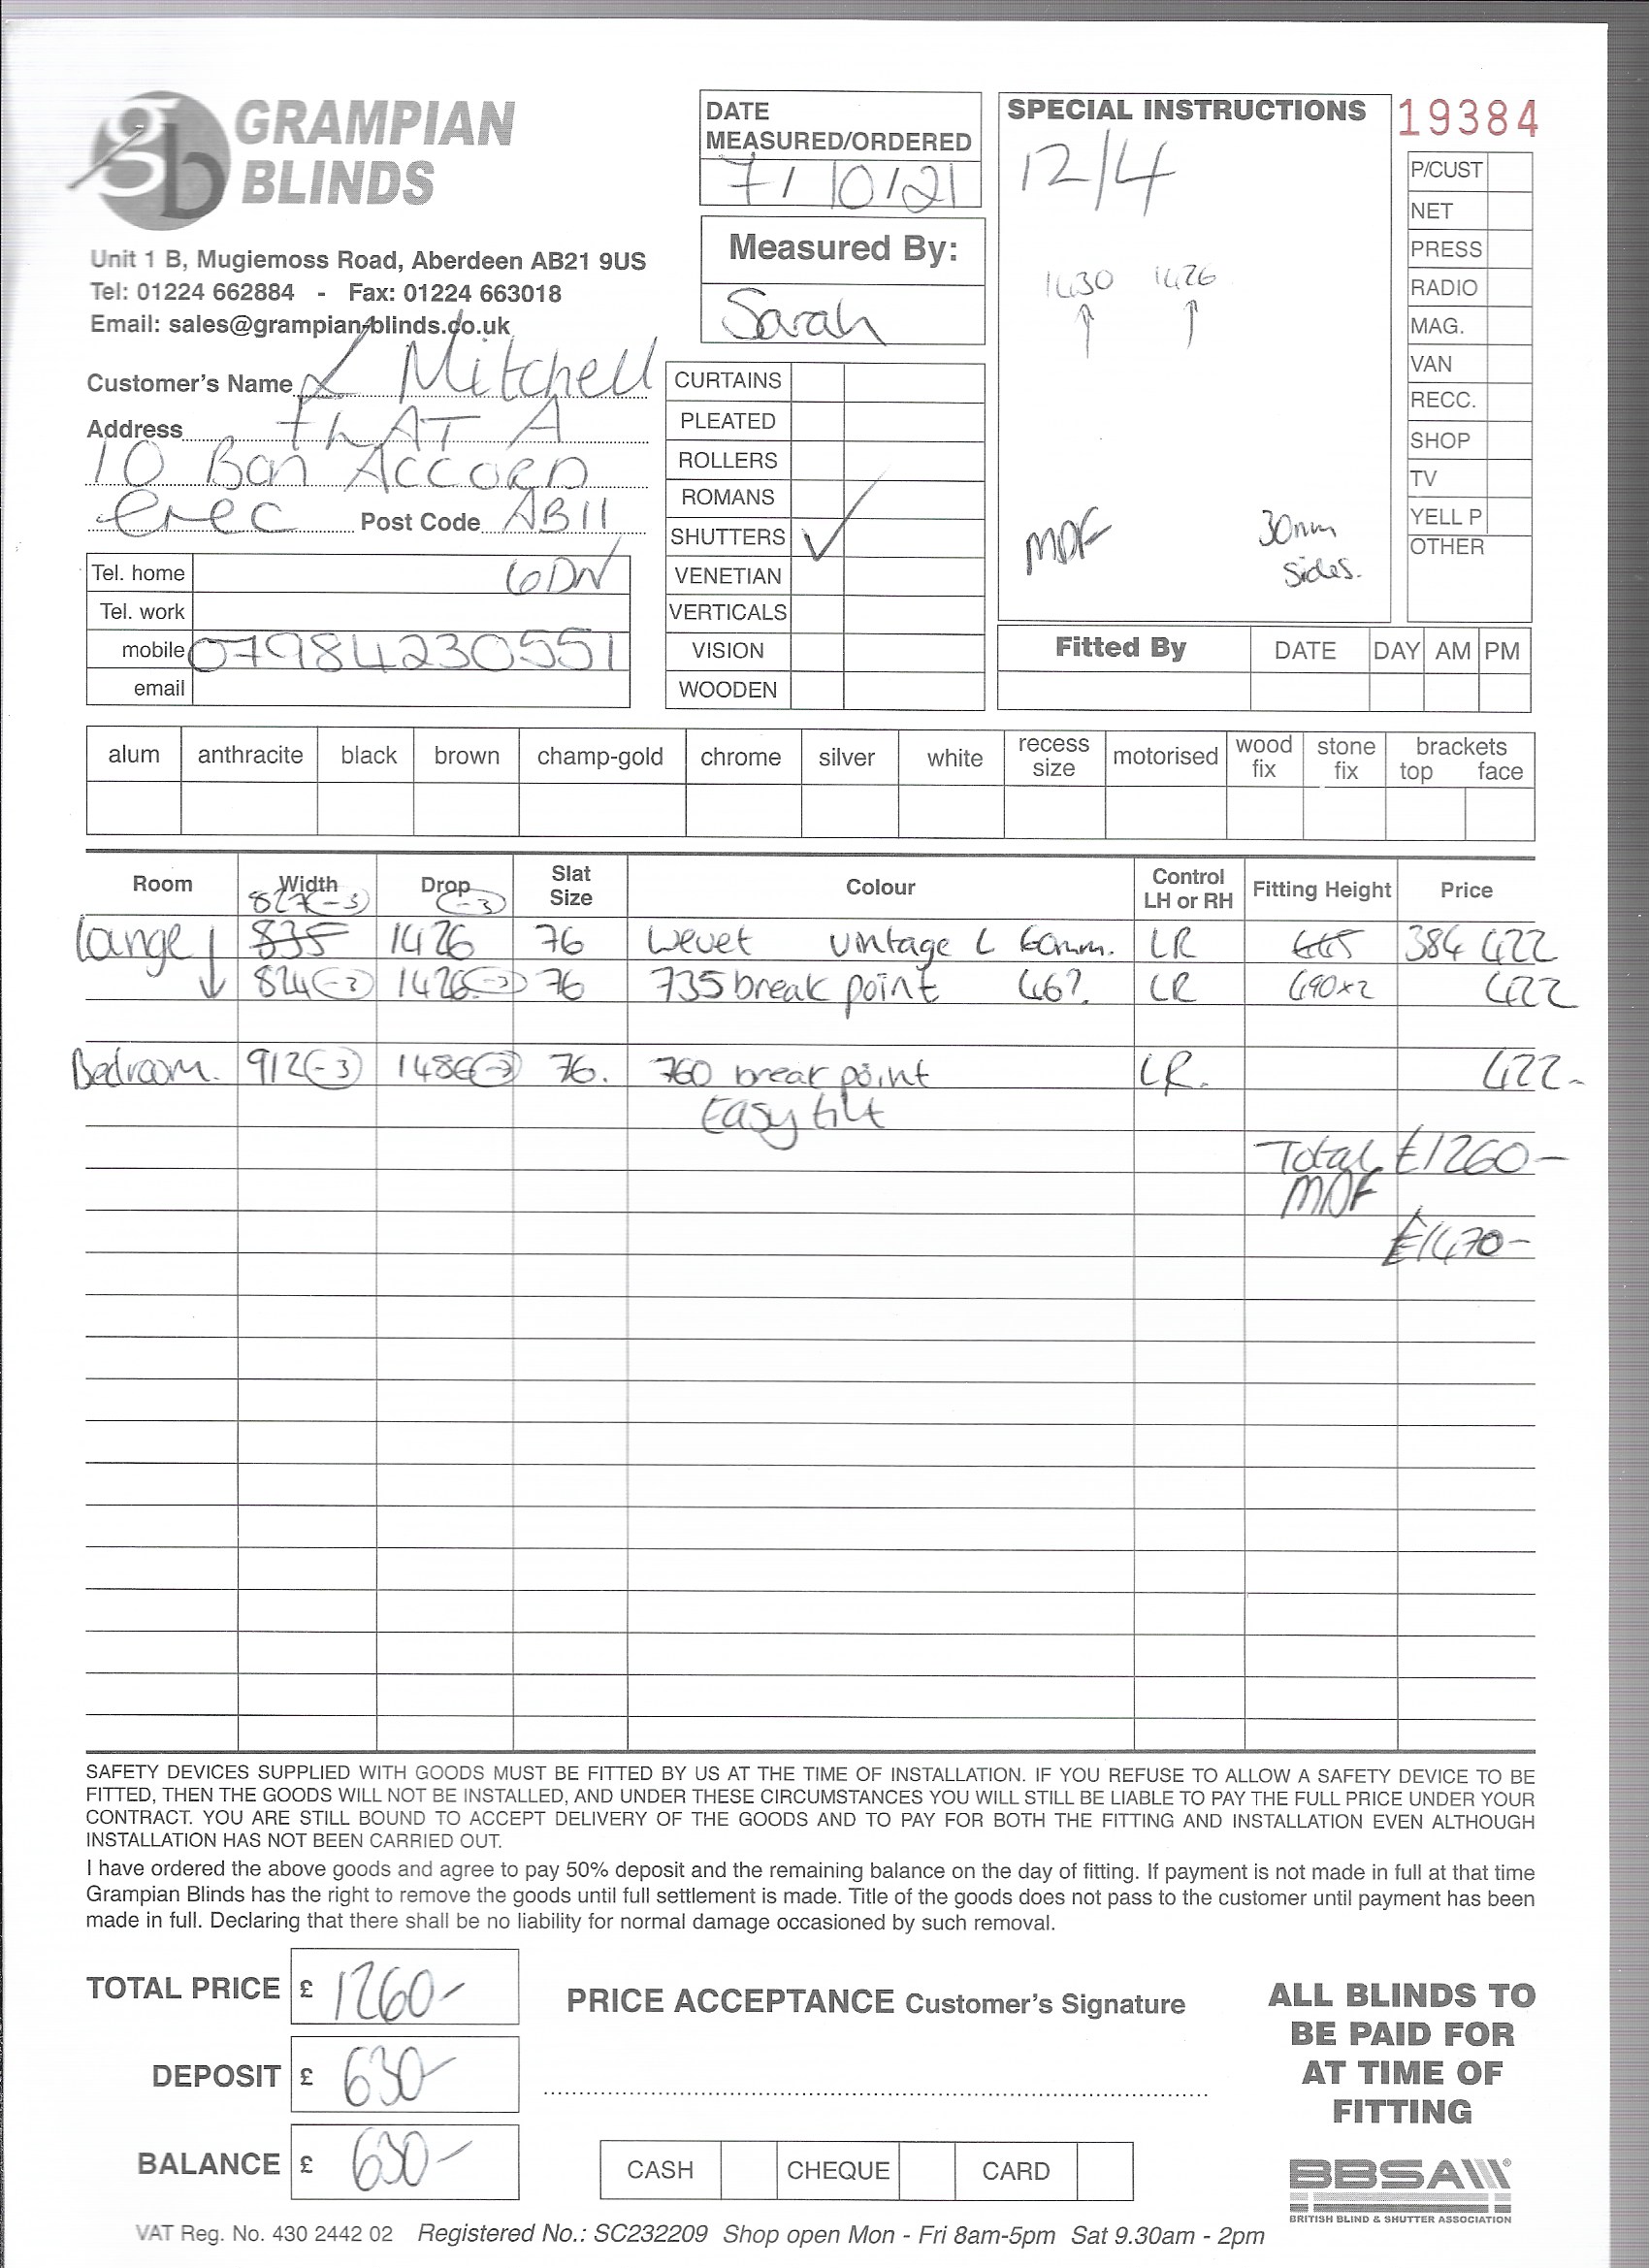 GRAMPIAN
BLINDS
Unit 1 B, Mugiemoss Road, Aberdeen AB21 9US
Tel: 01224 662884 - Fax: 01224 663018
Email: sales@grampian-blinds.co.uk
Customer's Name L Mitchell
Address FLAT A
10 Bon Accord
Cresc Post Code AB11
6DN
Tel. home
Tel. work
mobile 07984230551
email
DATE
MEASURED/ORDERED
7/10/21
Measured By:
Sarah
CURTAINS
PLEATED
ROLLERS
ROMANS
SHUTTERS ✓
VENETIAN
VERTICALS
VISION
WOODEN
SPECIAL INSTRUCTIONS
12/4
1430 1426
MDF 30mm
sides.
19384
P/CUST
NET
PRESS
RADIO
MAG.
VAN
RECC.
SHOP
TV
YELL P
OTHER
Fitted By DATE DAY AM PM
alum anthracite black brown champ-gold chrome silver white recess size motorised wood fix stone fix brackets top face
Room Width Drop Slat Size Colour Control LH or RH Fitting Height Price
827(-3) (-3)
Lounge 835 1426 76 Wevet vintage L 60mm. LR 665 384 422
824(-3) 1426(-3) 76 735 break point 467. LR 690x2 422
Bedroom. 912(-3) 1486(-3) 76. 760 break point LR. 422-
Easy tilt
Total £1260-
MDF
£1470-
SAFETY DEVICES SUPPLIED WITH GOODS MUST BE FITTED BY US AT THE TIME OF INSTALLATION. IF YOU REFUSE TO ALLOW A SAFETY DEVICE TO BE
FITTED, THEN THE GOODS WILL NOT BE INSTALLED, AND UNDER THESE CIRCUMSTANCES YOU WILL STILL BE LIABLE TO PAY THE FULL PRICE UNDER YOUR
CONTRACT. YOU ARE STILL BOUND TO ACCEPT DELIVERY OF THE GOODS AND TO PAY FOR BOTH THE FITTING AND INSTALLATION EVEN ALTHOUGH
INSTALLATION HAS NOT BEEN CARRIED OUT.
I have ordered the above goods and agree to pay 50% deposit and the remaining balance on the day of fitting. If payment is not made in full at that time
Grampian Blinds has the right to remove the goods until full settlement is made. Title of the goods does not pass to the customer until payment has been
made in full. Declaring that there shall be no liability for normal damage occasioned by such removal.
TOTAL PRICE £ 1260-
DEPOSIT £ 630-
BALANCE £ 630-
PRICE ACCEPTANCE Customer's Signature
CASH CHEQUE CARD
ALL BLINDS TO
BE PAID FOR
AT TIME OF
FITTING
BBSA
BRITISH BLIND & SHUTTER ASSOCIATION
VAT Reg. No. 430 2442 02 Registered No.: SC232209 Shop open Mon - Fri 8am-5pm Sat 9.30am - 2pm